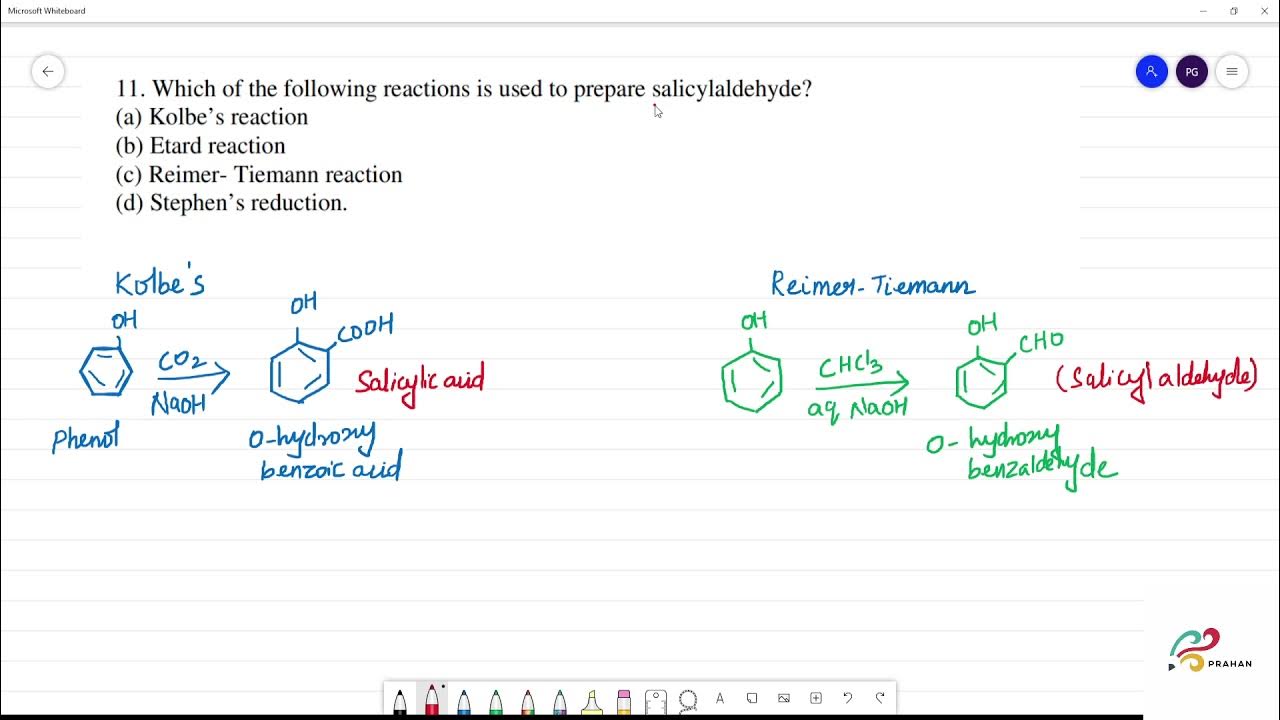 Microsoft Whiteboard
PG
11. Which of the following reactions is used to prepare salicylaldehyde?
(a) Kolbe's reaction
(b) Etard reaction
(c) Reimer- Tiemann reaction
(d) Stephen's reduction.
Kolbe's
OH
CO2
NaOH
Phenol
OH
COOH
Salicylic acid
O-hydroxy
benzoic acid
Reimer-Tiemann
OH
CHCl3
aq NaOH
OH
CHO
(Salicyl aldehyde)
O- hydroxy
benzaldehyde
PRAHAN
A